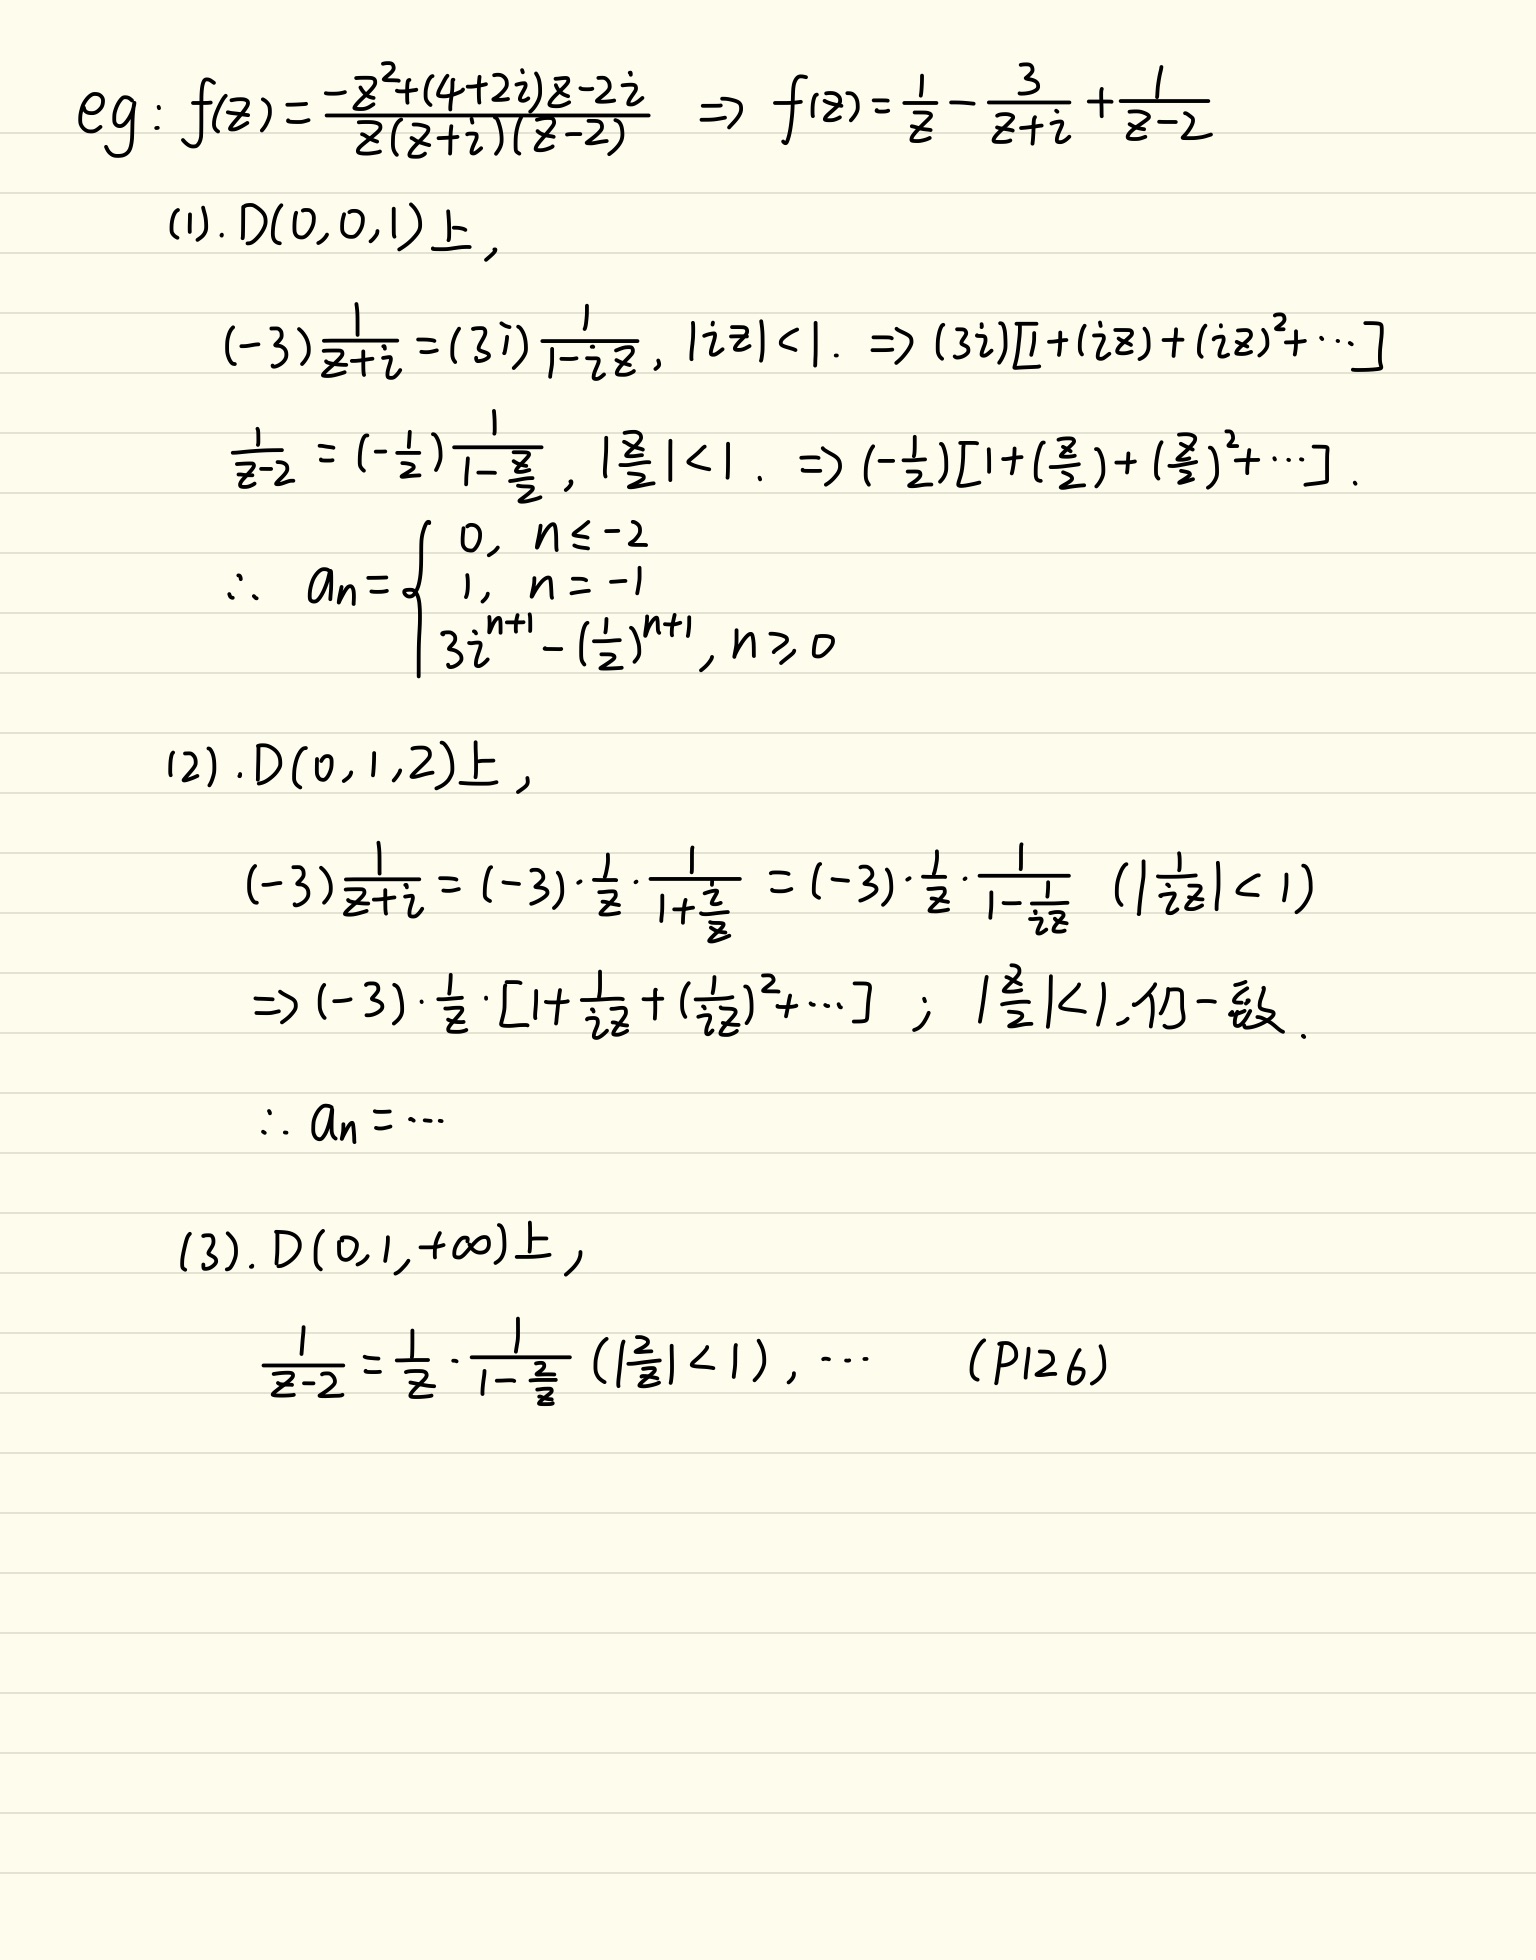 eg: f(z) = \frac{-z^2+(4+2i)z-2i}{z(z+i)(z-2)} ⇒ f(z) = \frac{1}{z} - \frac{3}{z+i} + \frac{1}{z-2}
(1). D(0,0,1)上,
(-3)\frac{1}{z+i} = (3i)\frac{1}{1-iz}, |iz|<1. ⇒ (3i)[1+(iz)+(iz)^2+⋯]
\frac{1}{z-2} = (-\frac{1}{2})\frac{1}{1-\frac{z}{2}}, |\frac{z}{2}|<1. ⇒ (-\frac{1}{2})[1+(\frac{z}{2})+(\frac{z}{2})^2+⋯].
∴ a_n = { 0, n ≤ -2
1, n = -1
3i^{n+1} - (\frac{1}{2})^{n+1}, n ≥ 0
(2). D(0,1,2)上,
(-3)\frac{1}{z+i} = (-3)·\frac{1}{z}·\frac{1}{1+\frac{i}{z}} = (-3)·\frac{1}{z}·\frac{1}{1-\frac{1}{iz}} (|\frac{1}{iz}|<1)
⇒ (-3)·\frac{1}{z}·[1+\frac{1}{iz}+(\frac{1}{iz})^2+⋯] ; |\frac{z}{2}|<1,仍一致.
∴ a_n = ⋯
(3). D(0,1,+∞)上,
\frac{1}{z-2} = \frac{1}{z}·\frac{1}{1-\frac{2}{z}} (|\frac{2}{z}|<1), ⋯ (P126)